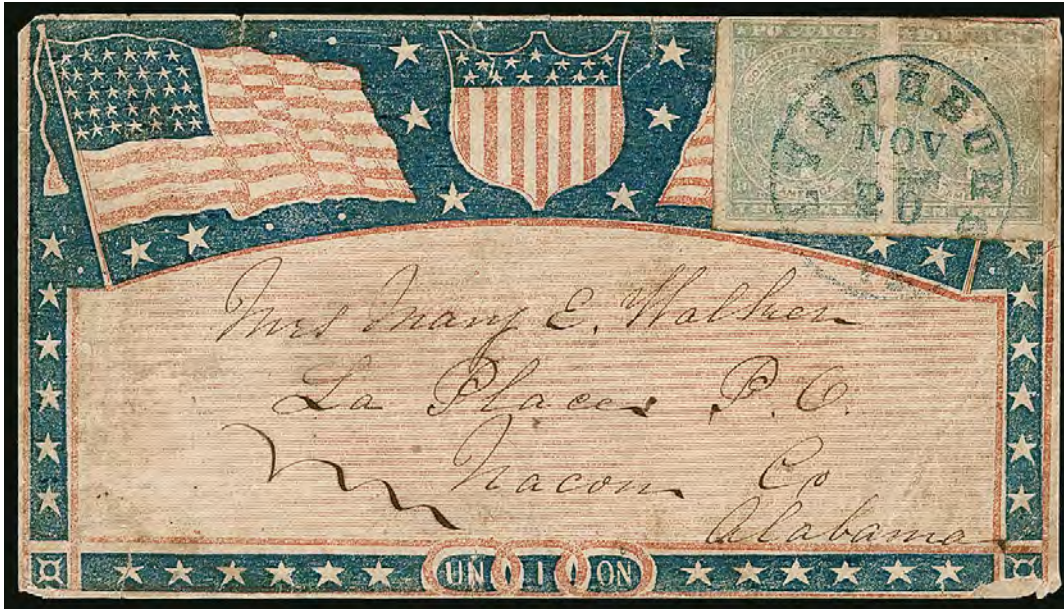 POSTAGE POSTAGE
LYNCHBURG
NOV
20
Mrs Mary E. Walker
La Places P. O.
Macon Co
Alabama
UN I ON